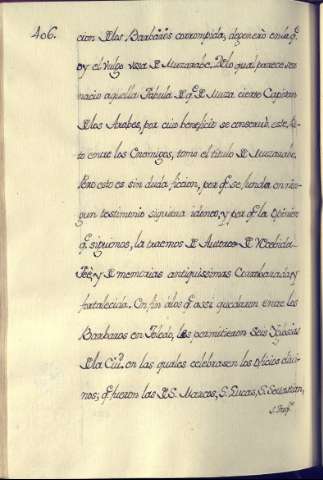 406.
cion de los Barbaros corrompida, degenerò en la q.^e
oy el vulgo usa de Muzarabe. De lo qual parece ser
nacio aquella Fabula de q.^e de Muza cierto Capitan
de los Arabes, por cuio beneficio se conservò este, 
to entre los Enemigos, tomò el titulo de Muzarabe.
Pero esto es sin duda ficcion, por q.^e se funda en nin-
gun testimonio siquiera idoneo, y por q.^e la Opinion
q.^e seguimos, la traemos de Autores de Reccbida
Feè, y de memorias antiquissimas Corroborada, y
fortalecida. En fin à los q.^e assi quedaron entre los
Barbaros en Toledo, les permitieron Seis Yglesias
de la Ciu.^d en las quales celebrasen los Oficios divi-
nos; q.^e fueron las de S. Marcos, S. Lucas, S. Sebastian,